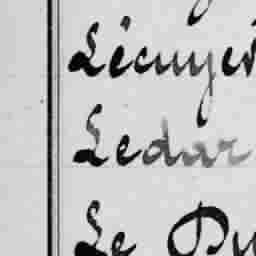 Lécuyer
Ledar
Le Du